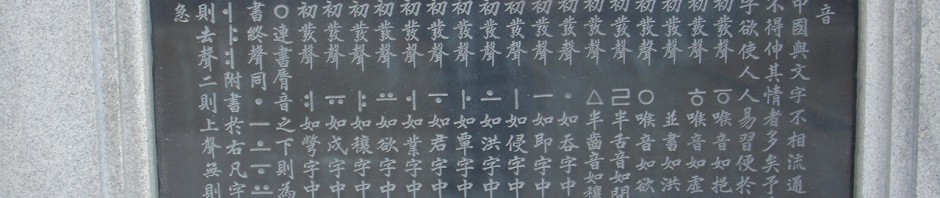 音
中國與文字不相流通
不得伸其情者多矣予
字欲使人人易習便於
初發聲 ㆆ喉音如挹
初發聲 ㅎ喉音如虛
初發聲 並書如洪
初發聲 ㅇ喉音如欲
初發聲 ㄹ半舌音如閭
初發聲 ㅿ半齒音如穰
初發聲 ㆍ如吞字中
初發聲 ㅡ如即字中
初發聲 ㅣ如侵字中
初發聲 ㅗ如洪字中
初發聲 ㅏ如覃字中
初發聲 ㅜ如君字中
初發聲 ㅓ如業字中
初發聲 ㅛ如欲字中
初發聲 ㅑ如穰字中
初發聲 ㅠ如戌字中
初發聲 ㅕ如彆字中
ㅇ連書脣音之下則為
書終聲同ㆍㅡㅗㅜㅛ
ㅓㅑㅕ附書於右凡字
則去聲二則上聲無則
急